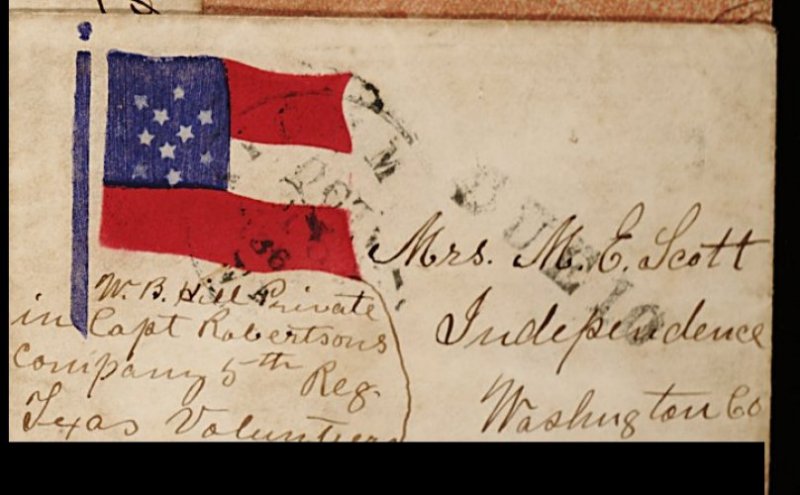 DUE 10
Mrs. M. E. Scott
Independence
Washington Co
W. B. Hill Private
in Capt Robertsons
Company 5th Reg.
Texas Volunteers